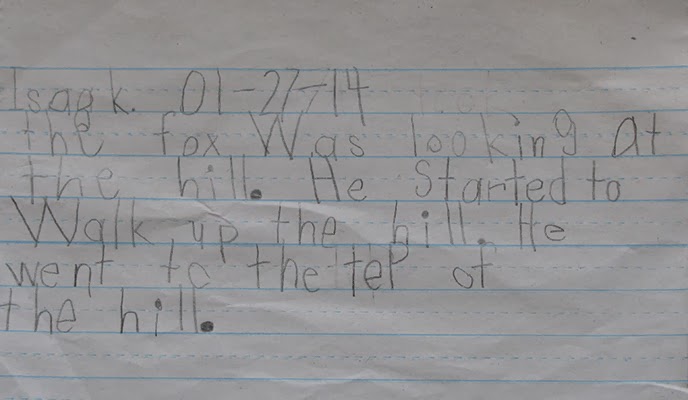 Isaak. 01-27-14
the fox Was looking at
the hill. He Started to
Walk up the hill. He
went to the tep of
the hill.